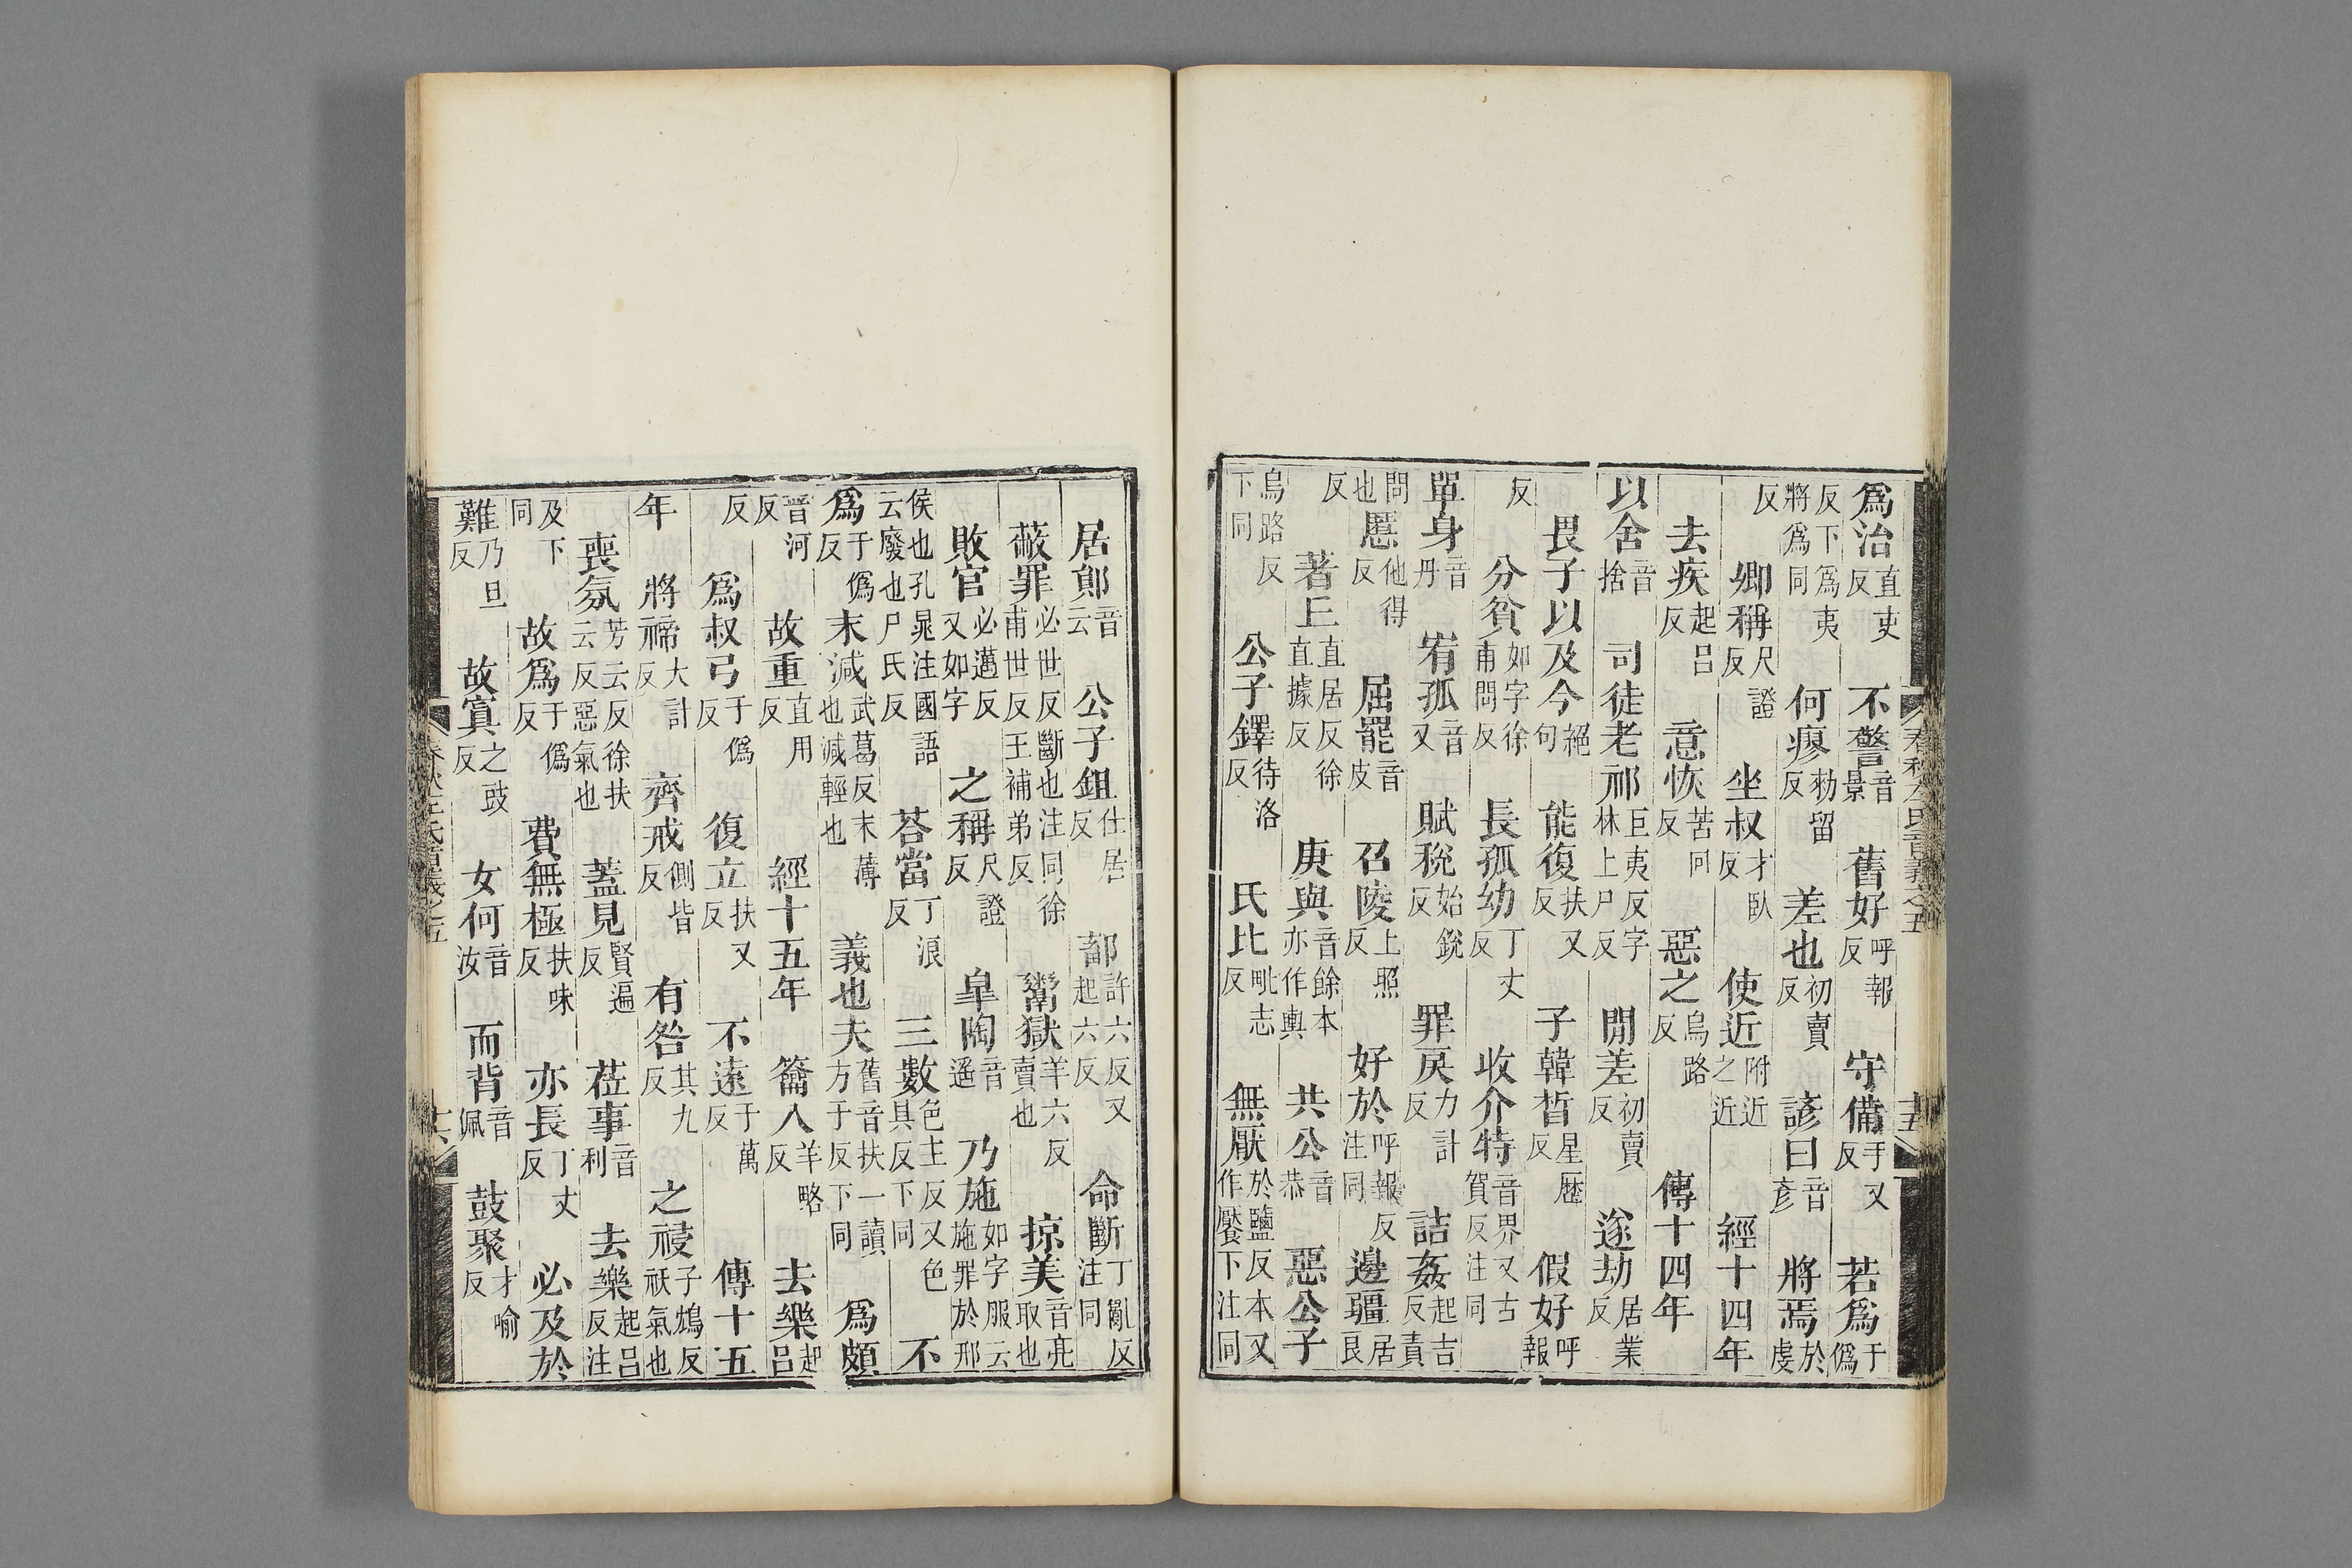 爲治直吏反不警音景舊好呼報反守備手又反若爲于僞
反下爲夷將爲同何瘳勑留反差也初賣反諺曰音彦將焉於虔
反卿稱尺證反坐叔才臥反使近附近之近經十四年
去疾起呂反意恢苦回反惡之烏路反傳十四年
以舍音捨司徒老祁巨夷反字林上尸反閒差初賣反遂劫居業反
畏子以及今絕句能復扶又反子韓晳星歷反假好呼報
反分貧如字徐甫問反長孤幼丁丈反收介特音界又古賀反注同
單身音丹宥孤音又賦稅始銳反罪戾力計反詰姦起吉反責
問也慝他得反屈罷音皮召陵上照反好於呼報反注同邊疆居良
反著丘直居反徐直據反庚與音餘本亦作輿共公音恭惡公子
烏路反下同公子鐸待洛反氏比毗志反無厭於鹽反本又作饜下注同
春秋左氏音義之五
居鄖音云公子鉏仕居反鄐許六反又起六反命斷丁亂反注同
蔽罪必世反斷也注同徐甫世反王補弟反鬻獄羊六反賣也掠美音亮取也
敗官必邁反又如字之稱尺證反臯陶音遥乃施如字服云施罪於邢
侯也孔晁注國語云廢也尸氏反荅當丁浪反三數色主反又色具反下同不
爲于僞反末減武葛反末薄也減輕也義也夫舊音扶一讀方于反下同爲頗
晋河反故重直用反經十五年籥入羊略反去樂起呂
反爲叔弓于僞反復立扶又反不遠于萬反傳十五
年將禘大計反齊戒側皆反有咎其九反之祲子鴆反祅氣也
喪氛芳云反徐扶云反惡氣也蓋見賢遍反莅事音利去樂起呂反注
及下同故爲于僞反費無極扶味反亦長丁丈反必及於
難乃旦反故寘之豉反女何音汝而背音佩鼓聚才喻反
春秋左氏音義之五